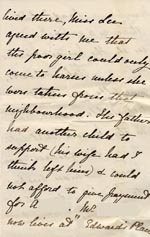 lived there, Miss Lee
agreed with me that
this poor girl could only
come to harm unless she
were taken from that
neighbourhood. The father
had another child to
support (his wife had I
think left him) & could
not afford to give payment
for A Mr
now lives at "Edward's Place